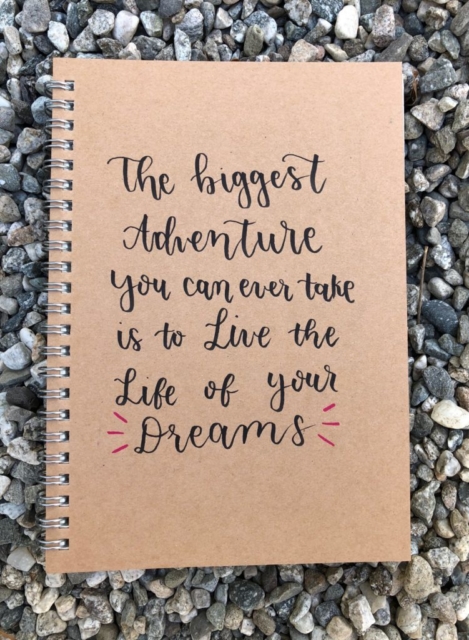 The biggest
Adventure
You can ever take
is to Live the
Life of your
Dreams